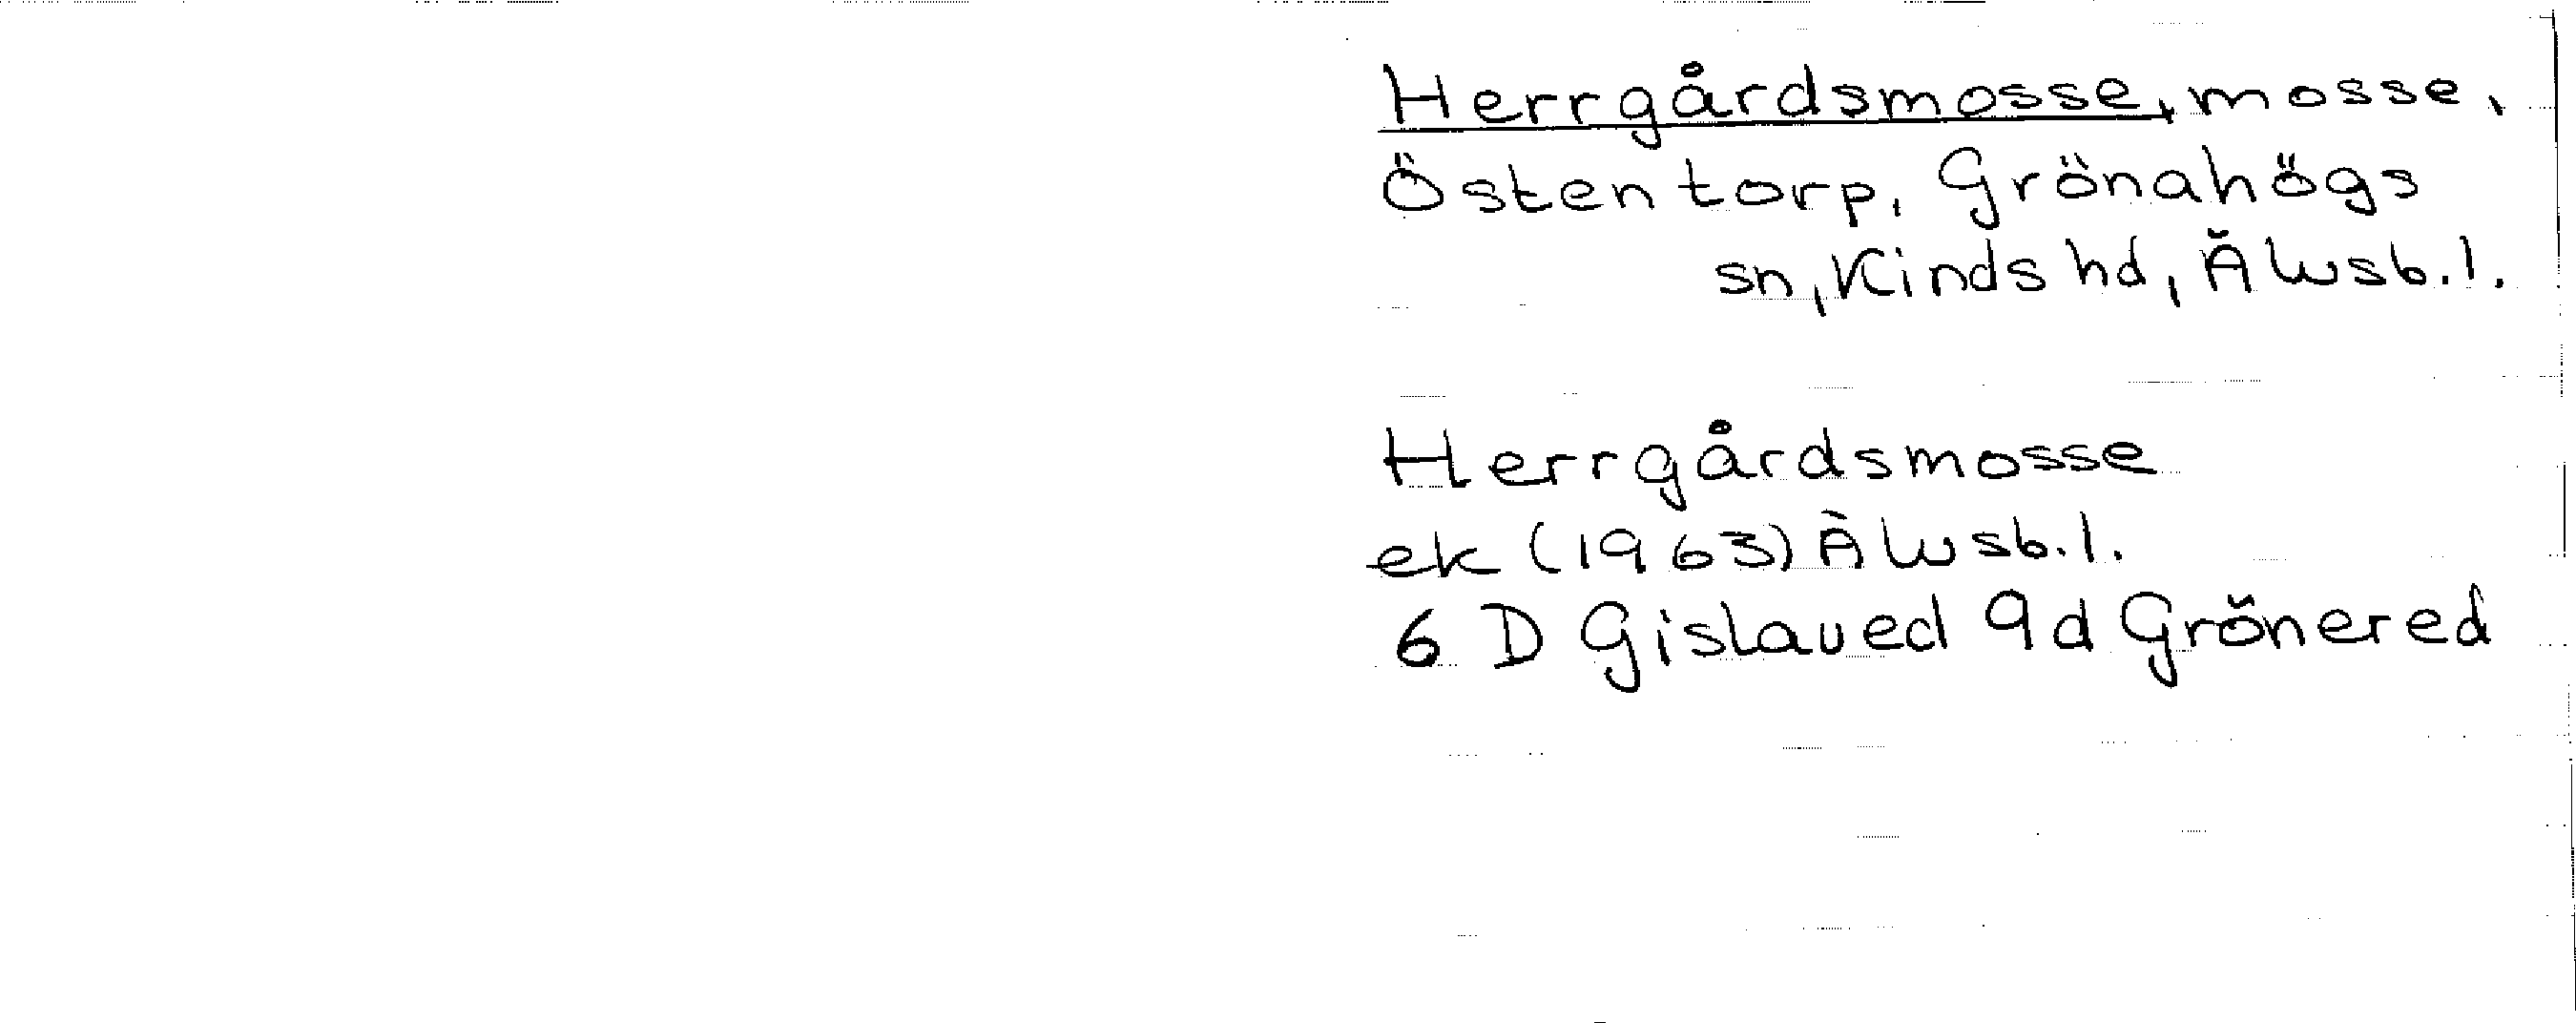 Herrgårdsmosse, mosse,
Östentorp, Grönahögs
sn, Kinds hd, Älvsb. l.
Herrgårdsmosse
ek (1963) Älvsb. l.
6 D Gislaved 9d Grönered